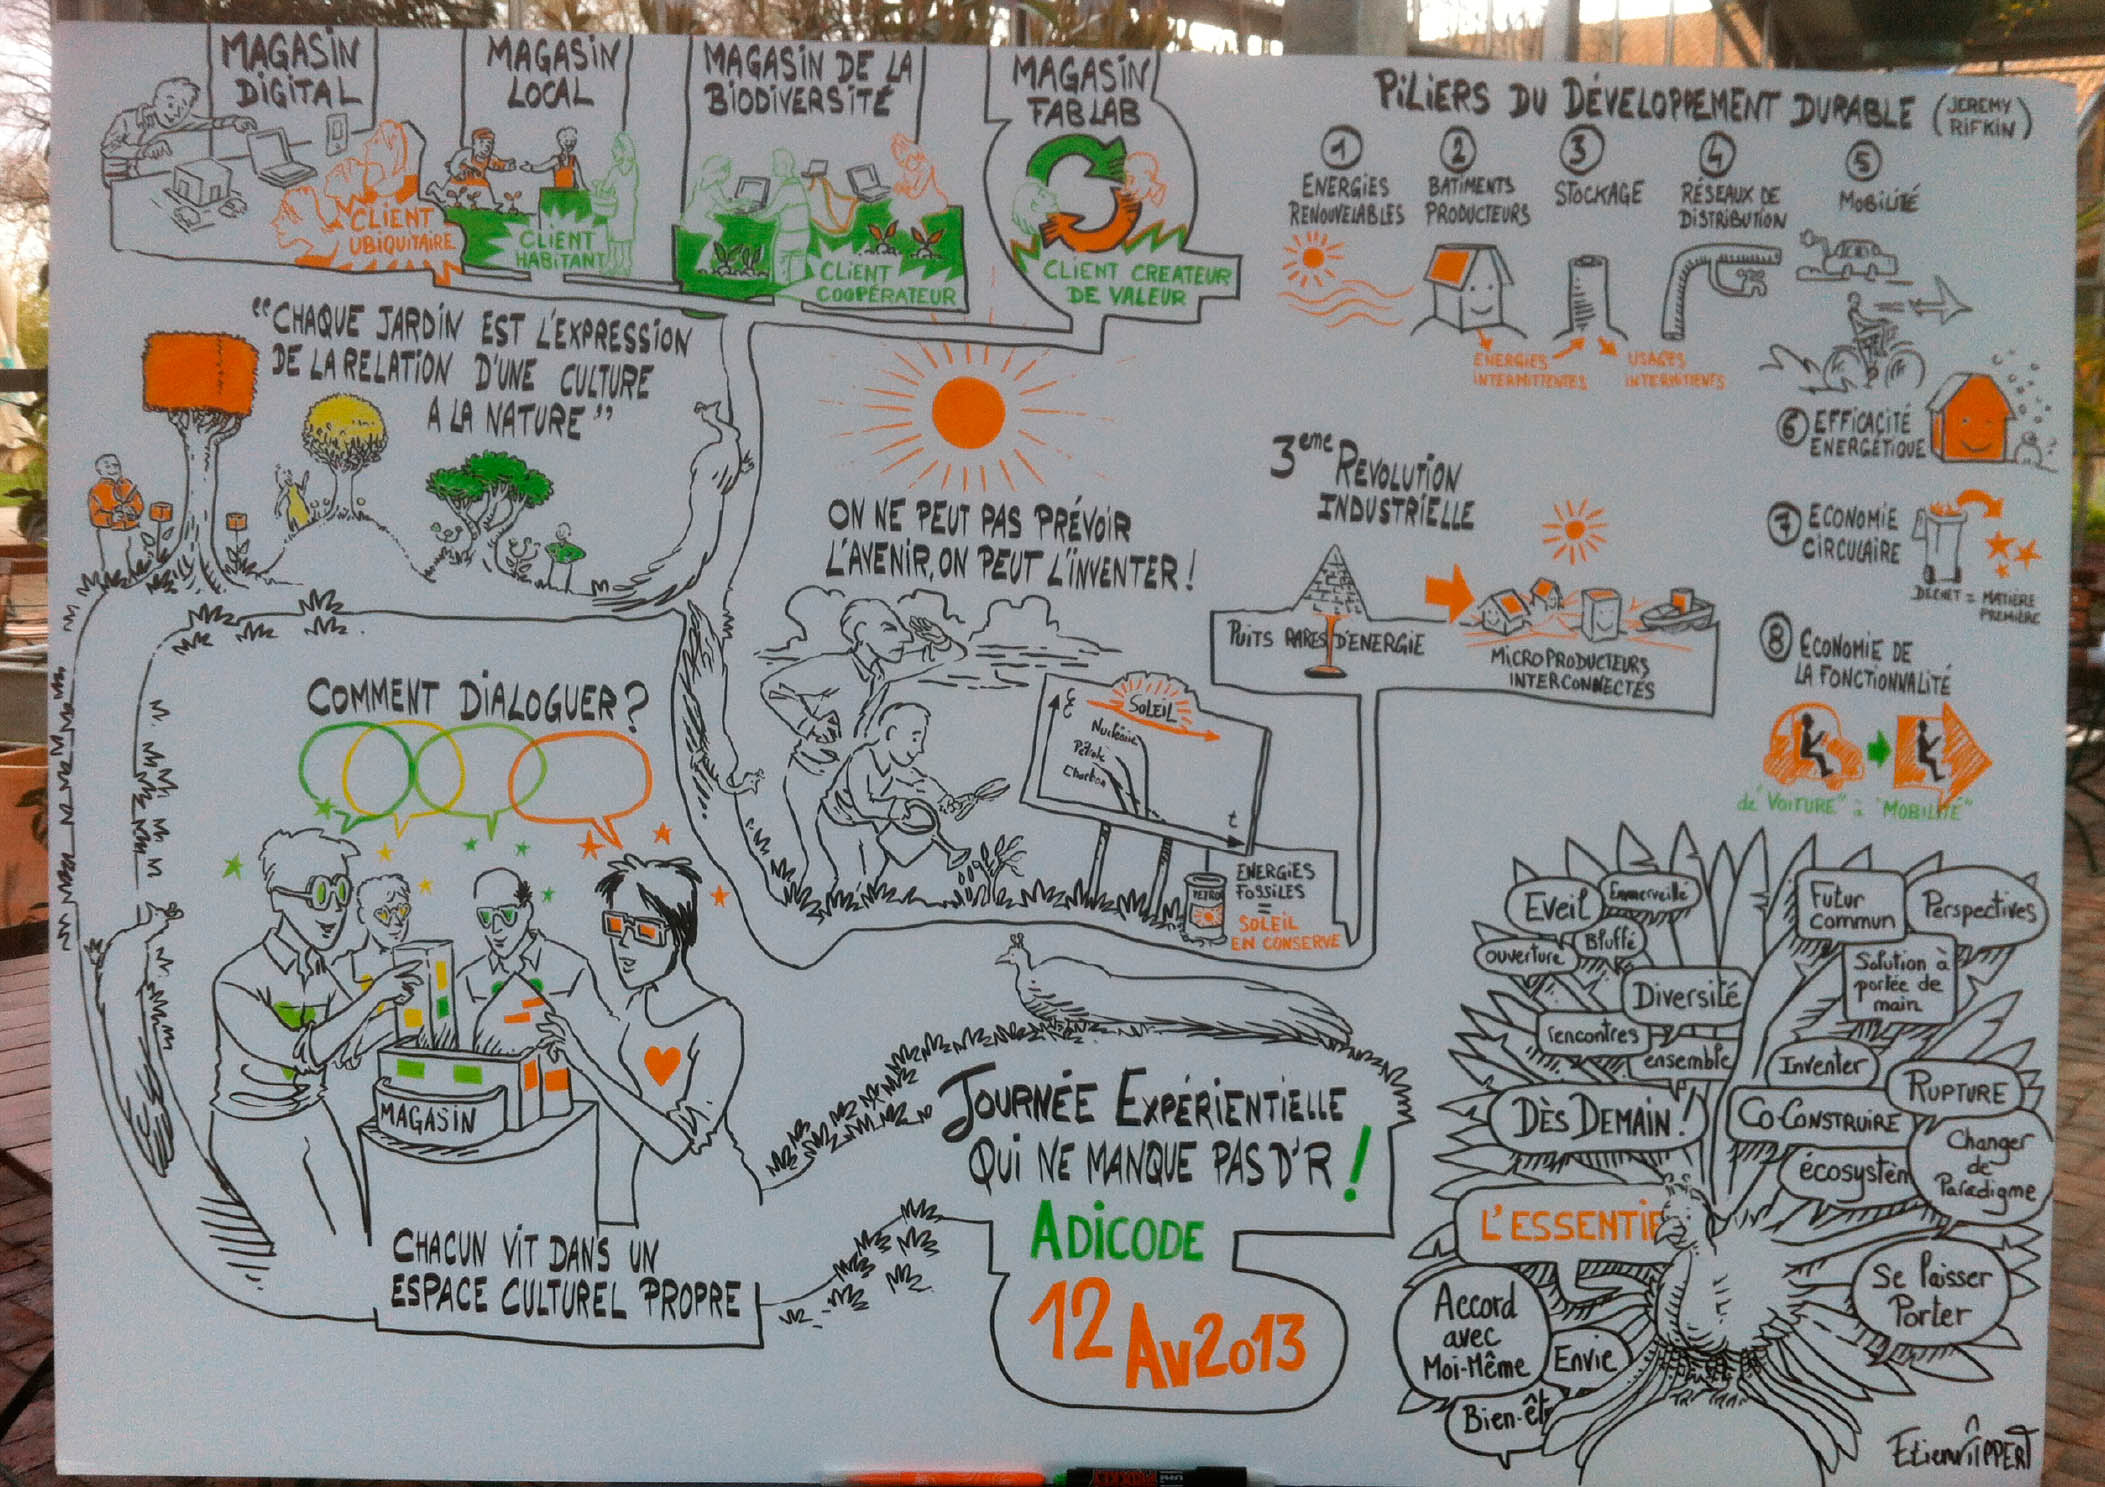 MAGASIN
DIGITAL
CLIENT
UBIQUITAIRE
MAGASIN
LOCAL
CLIENT
HABITANT
MAGASIN DE LA
BIODIVERSITÉ
CLIENT
COOPÉRATEUR
MAGASIN
FABLAB
CLIENT CREATEUR
DE VALEUR
PILIERS DU DÉVELOPPEMENT DURABLE (JEREMY
RIFKIN)
1
ENERGIES
RENOUVELABLES
2
BATIMENTS
PRODUCTEURS
3
STOCKAGE
4
RÉSEAUX DE
DISTRIBUTION
5
MOBILITÉ
ENERGIES
INTERMITTENTES
USAGES
INTERMITTENTS
6 EFFICACITÉ
ENERGÉTIQUE
7 ECONOMIE
CIRCULAIRE
DECHET = MATIÈRE
PREMIÈRE
8 ECONOMIE DE
LA FONCTIONNALITÉ
de "VOITURE" à "MOBILITÉ"
"CHAQUE JARDIN EST L'EXPRESSION
DE LA RELATION D'UNE CULTURE
A LA NATURE"
ON NE PEUT PAS PRÉVOIR
L'AVENIR, ON PEUT L'INVENTER !
SOLEIL
Nucléaire
Pétrole
Charbon
t
PETROL
ENERGIES
FOSSILES
=
SOLEIL
EN CONSERVE
3eme REVOLUTION
INDUSTRIELLE
PUITS RARES D'ENERGIE
MICROPRODUCTEURS
INTERCONNECTÉS
COMMENT DIALOGUER ?
MAGASIN
CHACUN VIT DANS UN
ESPACE CULTUREL PROPRE
JOURNÉE EXPÉRIENTIELLE
QUI NE MANQUE PAS D'R !
ADICODE
12 AV2013
Eveil
Emmerveillé
ouverture
Bluffé
Diversité
rencontres
ensemble
DÈS DEMAIN !
L'ESSENTIE
Accord
avec
Moi-Même
Envie
Bien-êt
Futur
commun
Perspectives
Solution à
portée de
main
Inventer
RUPTURE
CO-CONSTRUIRE
Changer
de
Paradigme
écosystèm
Se laisser
Porter